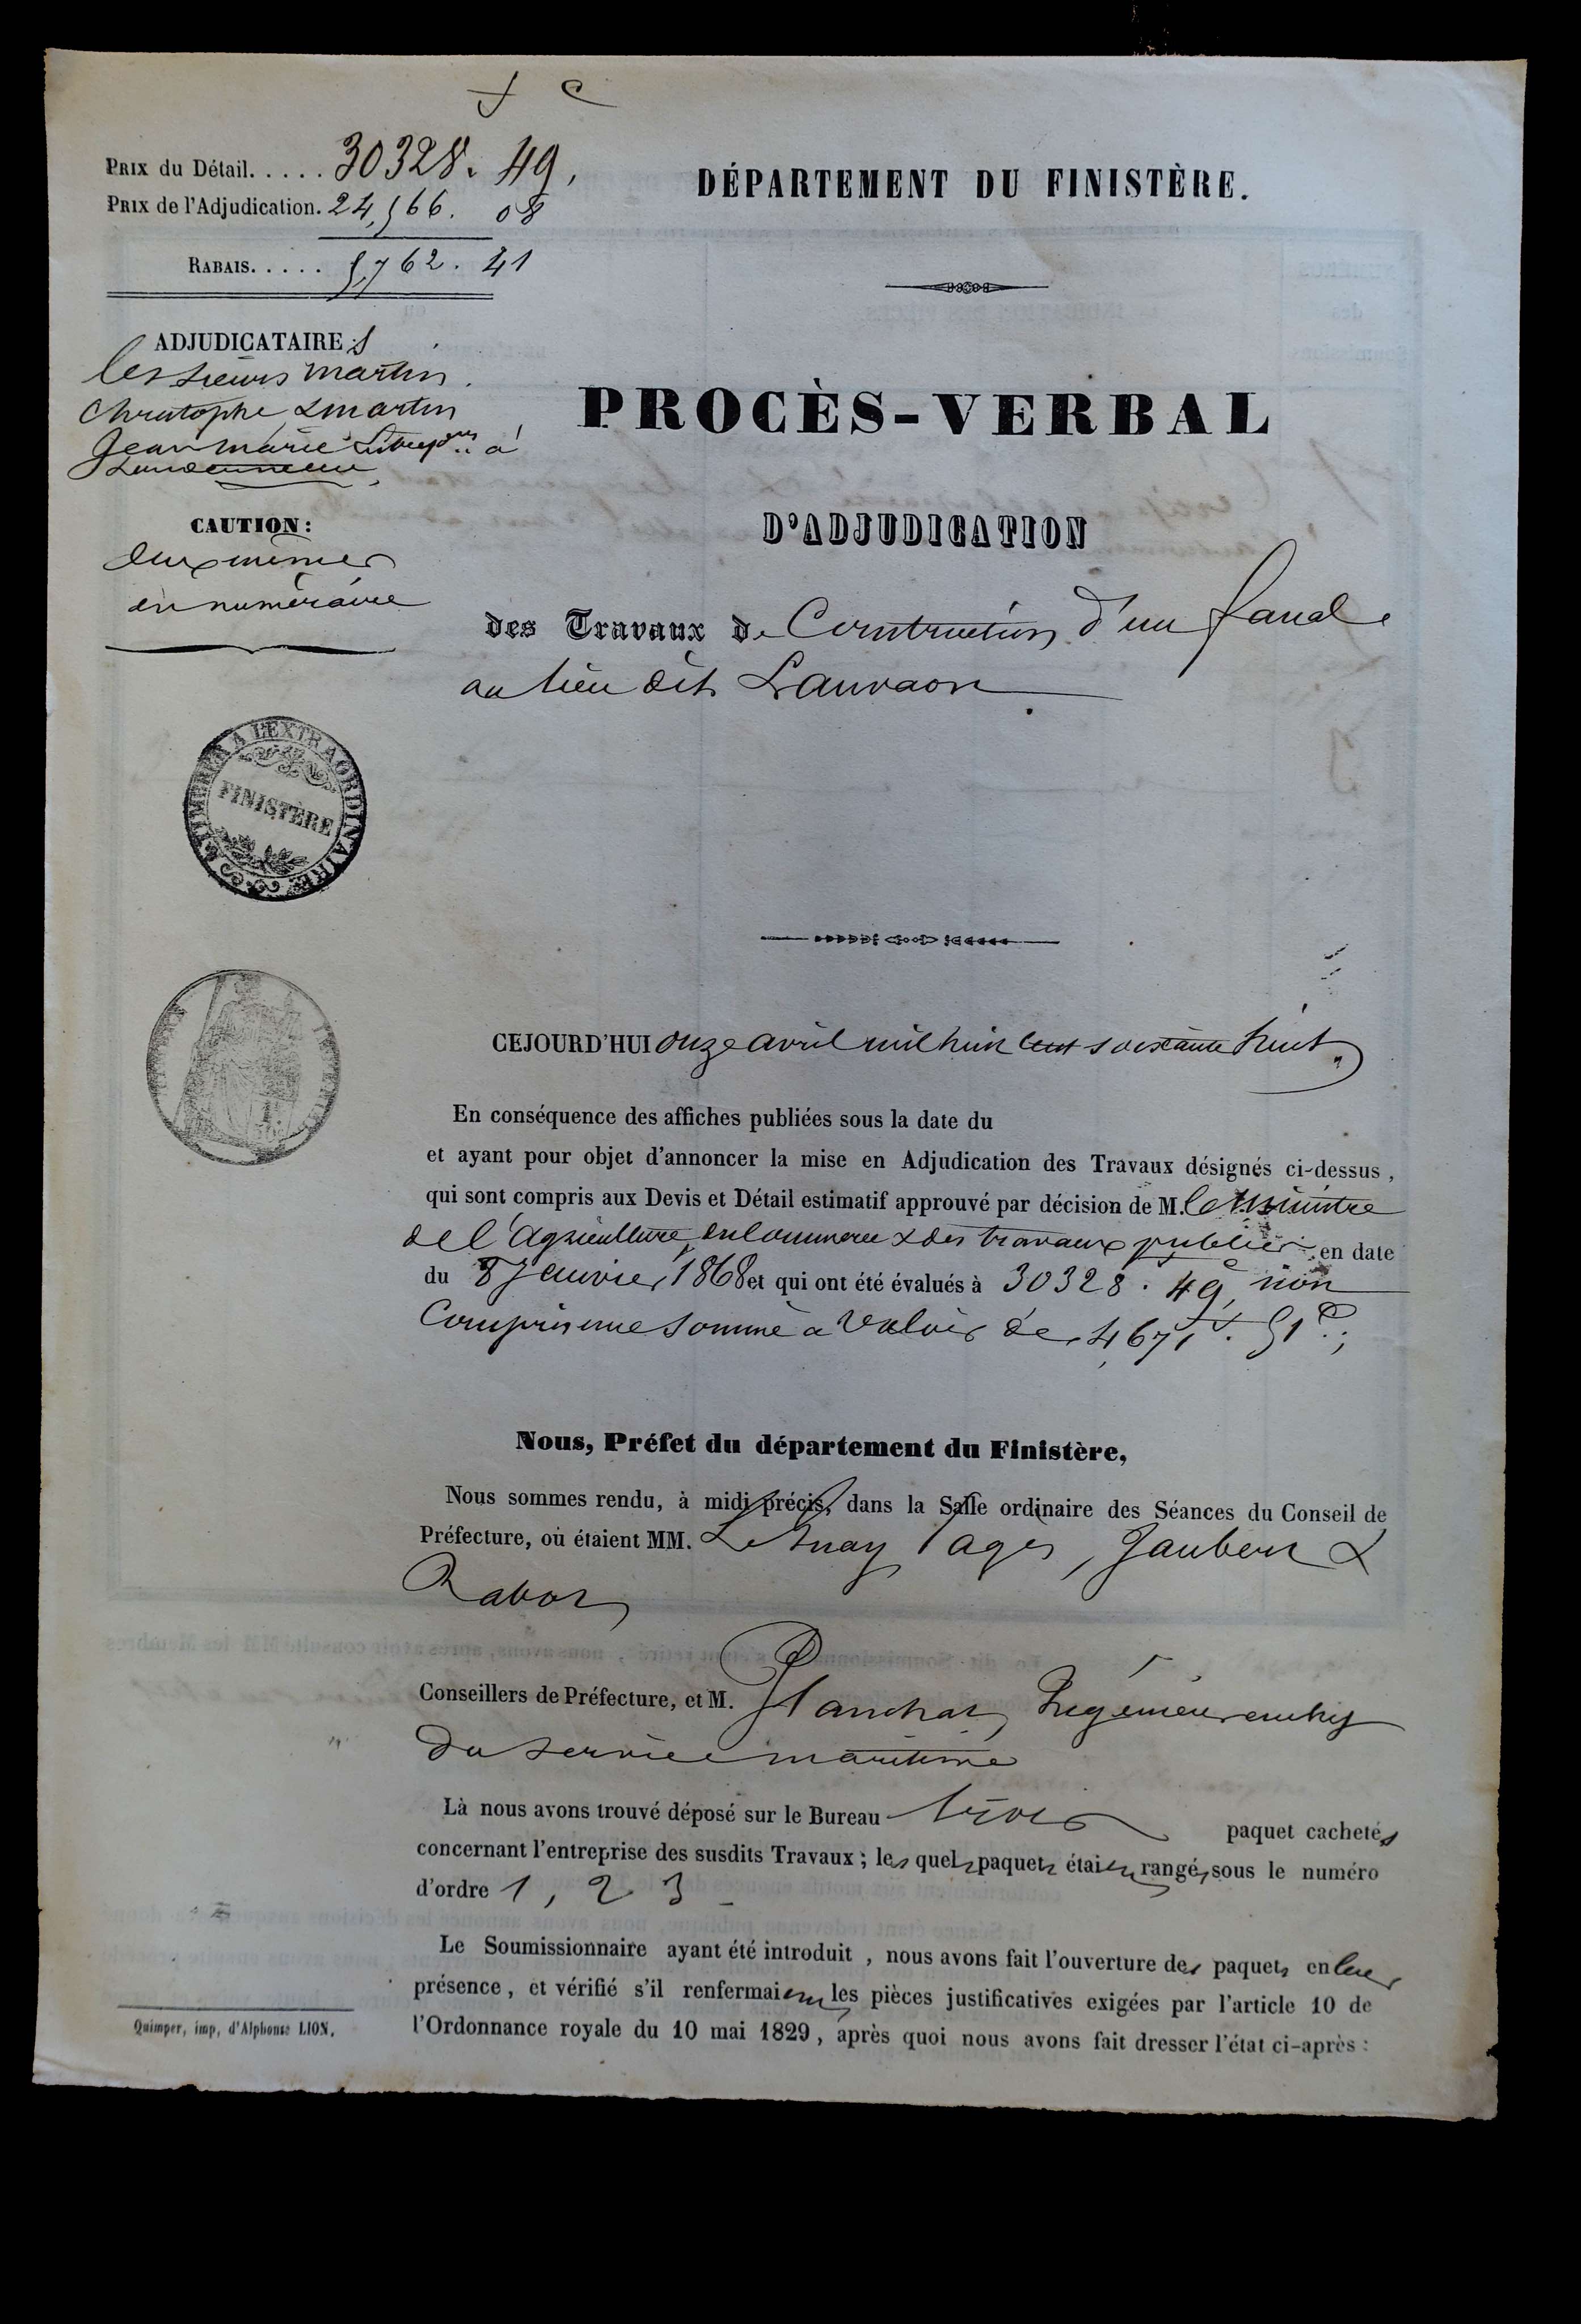 f c
PRIX du Détail..... 30328. 49,
PRIX de l'Adjudication. 24,566. 08
RABAIS..... 5,762. 41
DÉPARTEMENT DU FINISTÈRE.
ADJUDICATAIRE:s
les sieurs Martin
Christophe & Martin
Jean Marie Entrep.rs à
Landerneau
CAUTION:
Eux mêmes
en numéraire
PROCÈS-VERBAL
D'ADJUDICATION
des Travaux de Construction d'un fanal
au lieu dit Lanvaon
TIMBRE A L'EXTRAORDINAIRE
FINISTÈRE
CEJOURD'HUI onze avril mil huit cent soixante huit,
En conséquence des affiches publiées sous la date du
et ayant pour objet d'annoncer la mise en Adjudication des Travaux désignés ci-dessus,
qui sont compris aux Devis et Détail estimatif approuvé par décision de M. le Ministre
de l'Agriculture, du Commerce & des travaux publics en date
du 8 Janvier 1868 et qui ont été évalués à 30328. 49, non
Compris une somme à valoir de 4,671f. 51c.;
Nous, Préfet du département du Finistère,
Nous sommes rendu, à midi précis, dans la Salle ordinaire des Séances du Conseil de
Préfecture, où étaient MM. Pagès, Jaubert &
Rabot
Conseillers de Préfecture, et M. Planchat, Ingénieur en chef
du service maritime
Là nous avons trouvé déposé sur le Bureau trois paquet cachetés
concernant l'entreprise des susdits Travaux; les quels paquets étaient rangés sous le numéro
d'ordre 1, 2. 3
Le Soumissionnaire ayant été introduit, nous avons fait l'ouverture des paquets en leur
présence, et vérifié s'il renfermaient les pièces justificatives exigées par l'article 10 de
l'Ordonnance royale du 10 mai 1829, après quoi nous avons fait dresser l'état ci-après:
Quimper, imp, d'Alphonse LION.